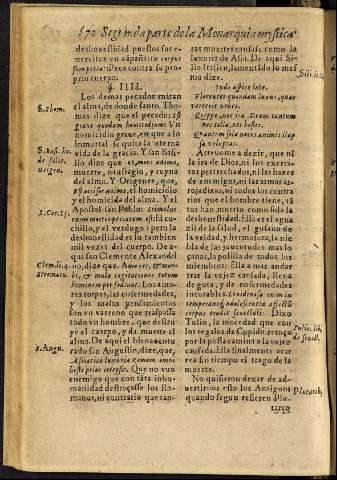 570 Segunda parte de la Monarquia mystica
deshonestidad puestos sus e-
xercitos en capañia: in corpus
suum peccat: Peca contra su pro-
prio cuerpo.
§. IIII.
Los demas pecados matan
el alma, de donde santo Tho-
mas dize que el pecado: est
grave quodam homicidium: Vn
homicidio grave, en que a lo
inmortal se quita la eterna
vida de la gracia. Y san Basi-
lio dize que es, mors animæ,
muerte, naufragio, y ruyna
del alma. Y Origenes, que,
est occisio animæ, el homicidio
y el homicida del alma. Y el
Apostol san Pablo: stimulus
enim mortis peccatum est: El cu-
chillo, y el verdugo: pero la
deshonestidad es lo tambien
mil vezes del cuerpo. De a-
qui san Clemente Alexandri
no, dize que: Amores, & mor-
bi, & malæ cogitationes totum
hominem perfodiunt: Los amo-
res torpes, las enfermedades,
y los malos pensamientos
son vn barreno que traspassa
todo vn hombre, que destru
ye el cuerpo, y da muerte al
alma. De aqui el bienauentu
rado san Augustin, dize, que,
Asiatica luxuria Romam omni
hoste peior intravit. Que no vuo
enemigo que con tãta inhu-
manidad destroçasse los Ro-
manos, ni contrario que can-
S. Thom.
S. Basi. ho.
Origen.
1. Cor. 15.
Clem. li. 4.
S. Augu.
tas muertes causasse como la
luxuria de Asia. De aqui Si-
lio Italico, lamentando lo mes
mo dize.
Quippe, nec ira Deum tantum
nec tela, nec hostes.
Quantum sola noces animis illap
sa voluptas.
Atreuome a dezir, que ni
la ira de Dios, ni los exerci-
tos pertrechados, ni las hazes
de enemigos, ni las armas ar-
rojadizas, ni todos los contra
rios que el hombre tiene, tã
tos han muerto como sola la
deshonestidad. Ella es el agua
zil de la salud, el gusano de
la verdad, y hermosura, la nie
bla de las juuentudes mas lo
çanas, la polilla de todos los
miembros: Ella a mas andar
trae la vejez cansada, llena
de gota, y de enfermedades
incurables. Libidinosa enim in
temperansq́; adolescentia affectũ
corpus tradit senectuti: Dixo
Tulio, la mocedad que con
los regalos de Cupido retoça
por la posta camina a la vejez
cansada. Ella finalmente acar
rea sin tiempo el trago de la
muerte.
No quisieron dexar de ad-
uertirnos esto los Antiguos
quando segun refieren Plu-
tarco
Sili. li.
de senect.
Plutarch.